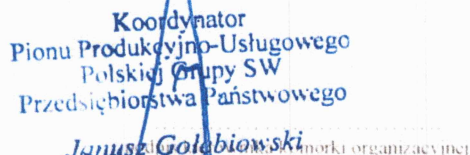 Koordynator
Pionu Produkcyjno-Usługowego
Polskiej Grupy SW
Przedsiębiorstwa Państwowego
Janusz Gołębiowski
komórki organizacyjnej